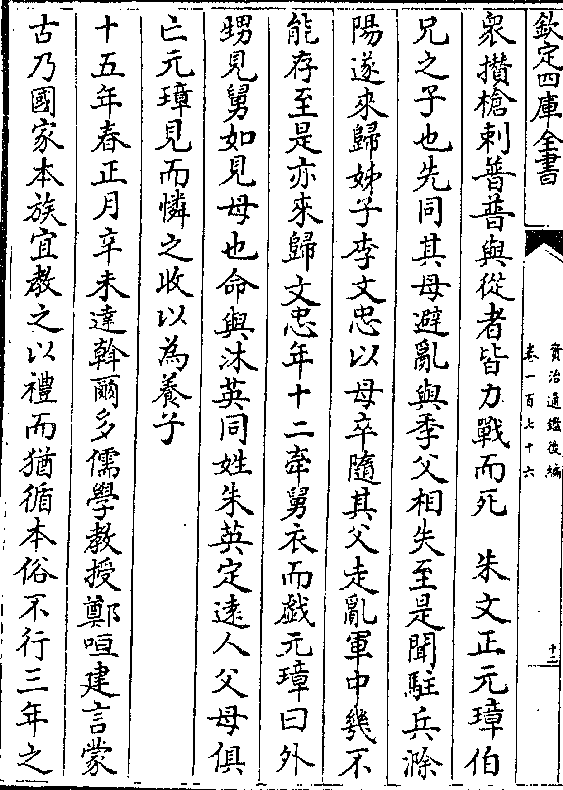 欽定四庫全書
資治通鑑後編
卷一百七十六
十三
衆攅槍刺普普與從者皆力戰而死　朱文正元璋伯
兄之子也先同其母避亂與季父相失至是聞駐兵滁
陽遂來歸姊子李文忠以母卒隨其父走亂軍中幾不
能存至是亦來歸文忠年十二牽舅衣而戯元璋曰外
甥見舅如見母也命與沐英同姓朱英定遠人父母俱
亡元璋見而憐之收以為養子
十五年春正月辛未達斡爾多儒學教授鄭咺建言蒙
古乃國家本族宜教之以禮而猶循本俗不行三年之